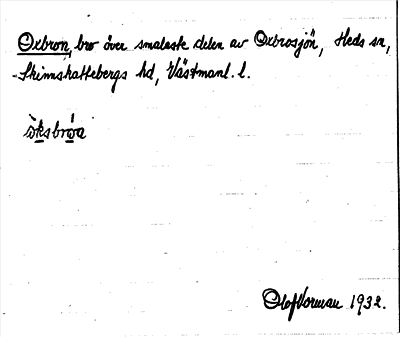 Oxbron, bro över smalaste delen av Oxbrosjön, Heds sn,
Skinnskattebergs hd, Västmanl. l.
Olof Vorman 1932.